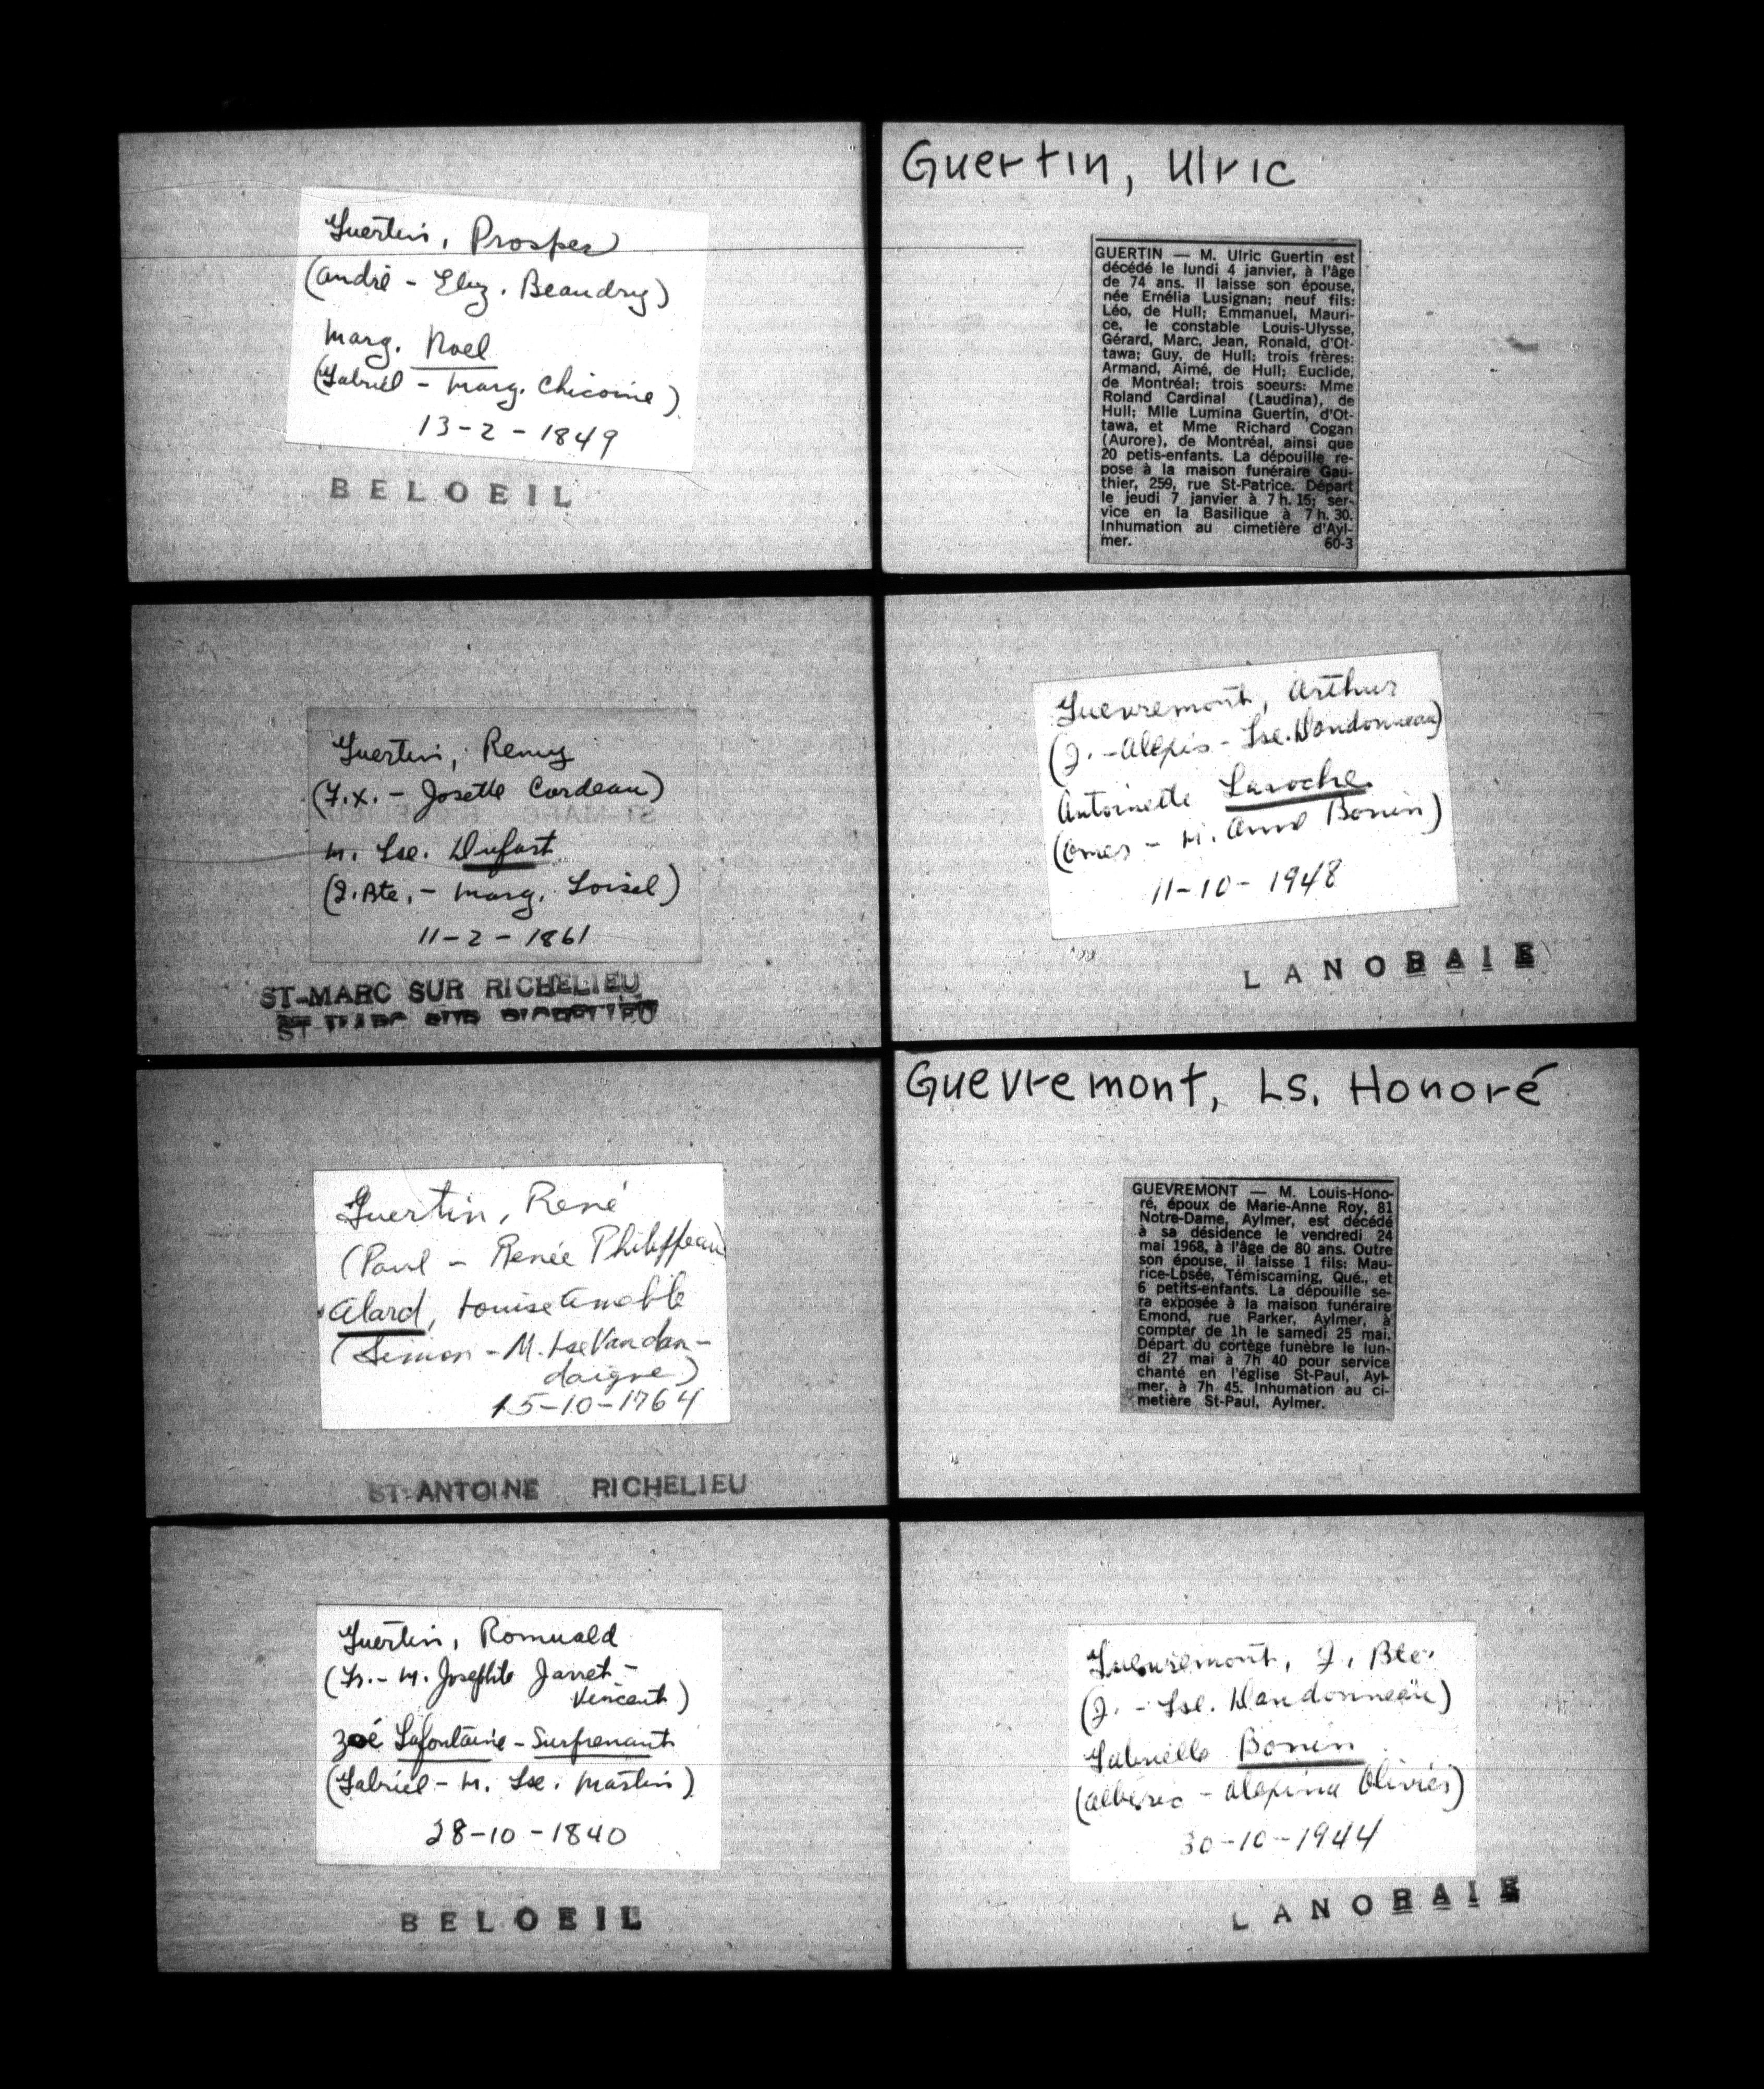 Guertin, Prosper
(André - Eliz. Beaudry)
Marg. Noel
(Gabriel - Marg. Chicoine)
13-2-1849
BELOEIL
Guertin, Remy
(F.X. - Josette Cordeau)
M. Lse. Dufort
(J.Bte. - Marg. Loisel)
11-2-1861
ST-MARC SUR RICHELIEU
Guertin, René
(Paul - Renée Philippeau)
Alard, Louise Amable
(Simon - M. Lse Vandan-
daigne)
15-10-1764
ST-ANTOINE RICHELIEU
Guertin, Romuald
(Fr. - M. Josephte Jarret -
Vincent)
Zoé Lafontaine - Surprenant
(Gabriel - M. Lse. Martin)
28-10-1840
BELOEIL
Guertin, Ulric
GUERTIN — M. Ulric Guertin est
décédé le lundi 4 janvier, à l'âge
de 74 ans. Il laisse son épouse,
née Emélia Lusignan; neuf fils:
Léo, de Hull; Emmanuel, Mauri-
ce, le constable Louis-Ulysse,
Gérard, Marc, Jean, Ronald, d'Ot-
tawa; Guy, de Hull; trois frères:
Armand, Aimé, de Hull; Euclide,
de Montréal; trois soeurs: Mme
Roland Cardinal (Laudina), de
Hull; Mlle Lumina Guertin, d'Ot-
tawa, et Mme Richard Cogan
(Aurore), de Montréal, ainsi que
20 petis-enfants. La dépouille re-
pose à la maison funéraire Gau-
thier, 259, rue St-Patrice. Départ
le jeudi 7 janvier à 7 h. 15; ser-
vice en la Basilique à 7 h. 30.
Inhumation au cimetière d'Ayl-
mer. 60-3
Guevremont, Arthur
(J. - Alexis - Lse. Dandonneau)
Antoinette Laroche
(Omer - M. Anne Bonin)
11-10-1948
LANORAIE
Guevremont, Ls. Honoré
GUEVREMONT — M. Louis-Hono-
ré, époux de Marie-Anne Roy, 81
Notre-Dame, Aylmer, est décédé
à sa désidence le vendredi 24
mai 1968, à l'âge de 80 ans. Outre
son épouse, il laisse 1 fils: Mau-
rice-Losée, Témiscaming, Qué., et
6 petits-enfants. La dépouille se-
ra exposée à la maison funéraire
Emond, rue Parker, Aylmer, à
compter de 1h le samedi 25 mai.
Départ du cortège funèbre le lun-
di 27 mai à 7h 40 pour service
chanté en l'église St-Paul, Ayl-
mer, à 7h 45. Inhumation au ci-
metière St-Paul, Aylmer.
Guevremont, J. Bte.
(J. - Lse. Dandonneau)
Gabrielle Bonin
(Albéric - Alexina Olivier)
30-10-1944
LANORAIE